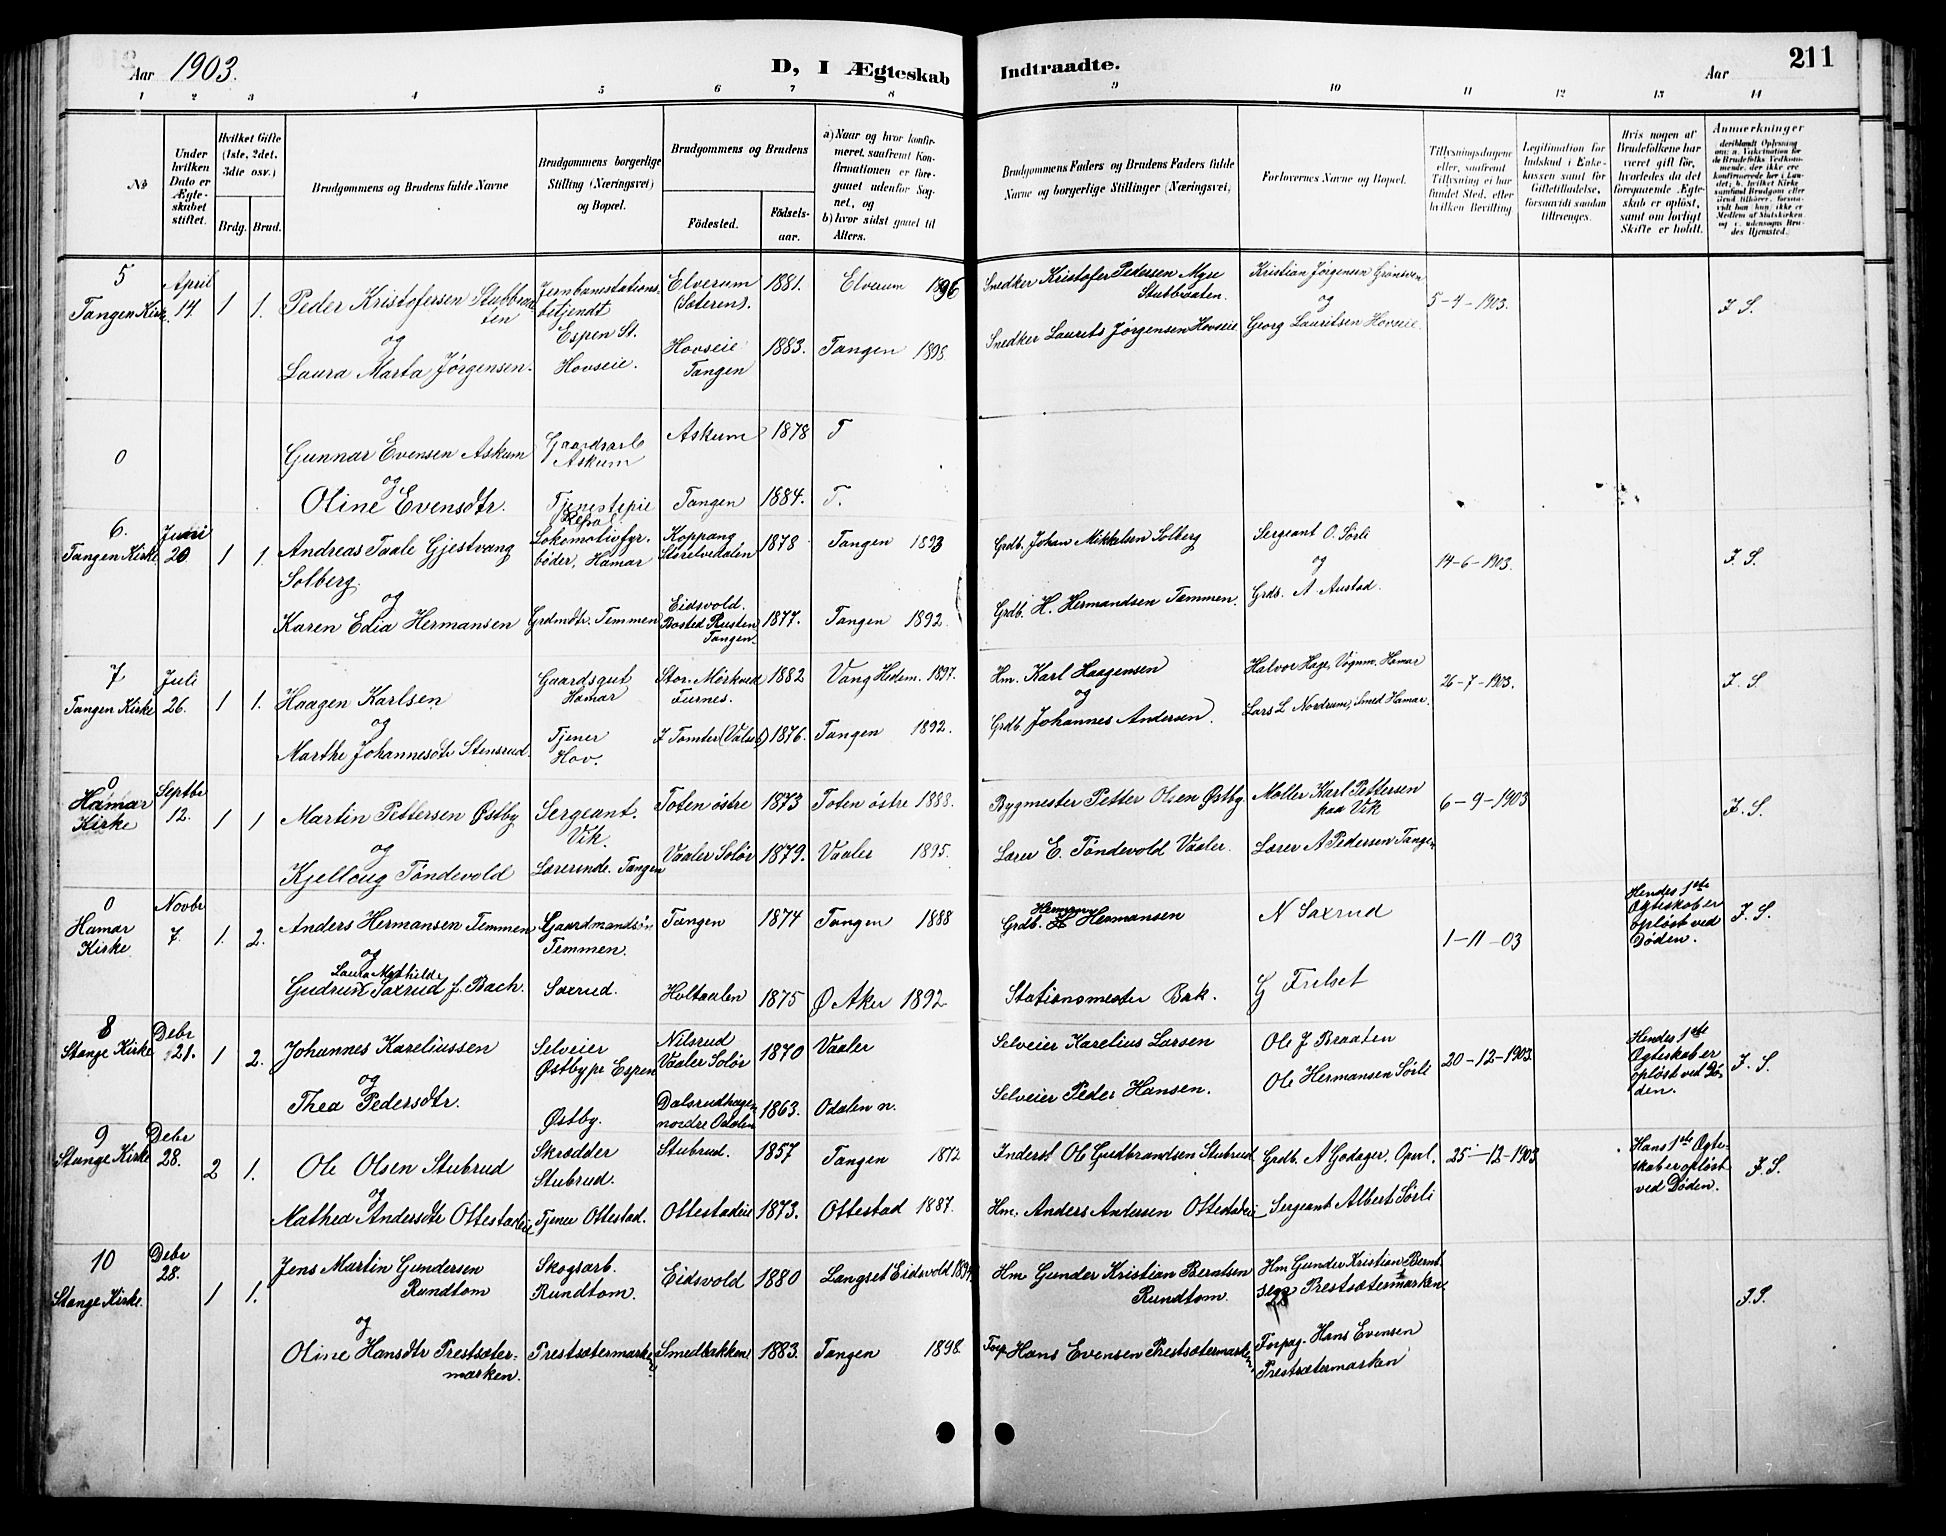 Aar 1903.
D, I Ægteskab Indtraadte.
Aar
211
1 2 3 4 5 6 7 8 9 10 11 12 13 14
No
Under hvilken Dato er Ægteskabet stiftet.
Hvilket Gifte (1ste, 2det, 3die osv.)
Brdg. Brud.
Brudgommens og Brudens fulde Navne
Brudgommens borgerlige Stilling (Næringsvei) og Bopæl.
Brudgommens og Brudens
Fødested. Fødselsaar.
a) Naar og hvor konfirmeret, saafremt Konfirmationen er foregaaet udenfor Sognet, og
b) hvor sidst gaaet til Alters.
Brudgommens Faders og Brudens Faders fulde Navne og borgerlige Stillinger (Næringsvei).
Forlovernes Navne og Bopæl.
Tillysningsdagene eller, saafremt Tillysning ei har fundet Sted, efter hvilken Bevilling
Legitimation for Indskud i Enkekassen samt for Giftetilladelse, forsaavidt saadan tiltrænges.
Hvis nogen af Brudefolkene har været gift før, hvorledes da det foregaaende Ægteskab er opløst, samt om lovligt Skifte er holdt.
Anmerkninger
5 Tangen Kirke April 14. 1 1.
Peder Kristofersen Stubbraaten
Jernbanestationsbetjendt Espen St.
Elverum (Sæteren). 1881. Elverum 1896
Snedker Kristofer Pedersen Myse Stubbraaten.
Kristian Jørgensen Grønsveen
5-4-1903. J. S.
og
Laura Marta Jørgensen. Hovseie.
Hovseie Tangen 1883. Tangen 1898
Snedker Laurits Jørgensen Hovseie
og
Georg Lauritsen Hovseie.
0
Gunnar Evensen Askum Gaardsarb Askum Askum 1878 T
og
Oline Evensdtr. Tjenestepie Tangen 1884. T.
6. Tangen Kirke Juni 20 1 1.
Andreas Taale Gjestvang Solberg.
Lokomotivfyrbøder, Hamar
Koppang Storelvedalen 1878 Tangen 1893
Grdb. Johan Mikkelsen Solberg
Sergeant O. Sørli
og
14-6-1903. J. S.
og
Karen Edia Hermansen Grdmdtr. Temmen
Eidsvold. Bosted Rusten Tangen. 1877. Tangen 1892
Grdb. H. Hermandsen Temmen.
Grdb. A Austad.
7 Tangen Kirke Juli 26. 1 1.
Haagen Karlsen Gaardsgut Hamar
Stor-Mørkved Furnes. 1882 Vang Hedem. 1897.
Hm. Karl Haagensen
Halvor Hage, Vognm. Hamar
26-7-1903. J. S.
og
Marthe Johannesdtr Stensrud. Tjener Hov.
1876. Tangen 1892.
og
Grdb. Johannes Andersen.
Lars L Nordrum, Smed Hamar.
0 Hamar Kirke Septbr 12. 1 1
Martin Pettersen Østby Sergeant. Vik.
Toten østre 1873 Toten østre 1888.
Bygmester Petter Olsen Østby.
Møller Karl Pettersen paa Vik
6-9-1903 J. S.
og
Kjellaug Tøndevold Lærerinde. Tangen
Vaaler Solør 1879. Vaaler 1895.
Lærer E. Tøndevold Vaaler.
Lærer A Pedersen Tangen
0 Hamar Kirke Novbr 7. 1. 2.
Anders Hermansen Temmen Gaardmandsøn Temmen.
Tangen 1874 Tangen 1888
Grdb. Herman Hermansen
N Saxrud
1-11-03
Hendes 1ste Ægteskab er opløst ved Døden.
J. S.
og
Laura Mathilde
Gudrun Saxrud f. Bach. Saxrud.
Holtaalen 1875 Ø Aker 1892
Stationsmester Bak.
G Frilset
8 Stange Kirke Debr 21. 1 2.
Johannes Kareliussen Selveier Østbype Espen
Nilsrud Vaaler Solør 1870 Vaaler
Selveier Karelius Larsen
Ole J Braaten
20-12-1903
Hendes 1ste Ægteskab er opløst ved Døden.
J. S.
og
Thea Pedersdtr. Østby.
Dalsrudhagen nordre Odalen 1863. Odalen n.
Selveier Peder Hansen.
Ole Hermansen Sørli
9 Stange Kirke Debr 28. 2 1.
Ole Olsen Stubrud Skrædder Stubrud.
Stubrud. 1857 Tangen 1872
Inderst Ole Gudbrandsen Stubrud
Grdb. A Godager, Opsl.
25-12-1903
Hans 1ste Ægteskab er opløst ved Døden.
J. S.
og
Mathea Andersdtr Ottestadeie Tjener Ottestad.
Ottestadeie 1873. Ottestad 1887.
Hm. Anders Andersen Ottestadeie
Sergeant Albert Sørli
10 Stange Kirke. Debr 28. 1 1.
Jens Martin Gundersen Rundtom Skogsarb. Rundtom.
Eidsvold 1880 Langset Eidsvold 1894
Hm Gunder Kristian Berntsen Rundtom.
Hm Gunder Kristian Berntsen Prestsætermarken.
J. S.
og
Oline Hansdtr Prestsætermarken. Prestsætermarken
Smedbakken 1883. Tangen 1898.
Forp Hans Evensen Prestsætermarken.
Forpag. Hans Evensen Prestsætermarken